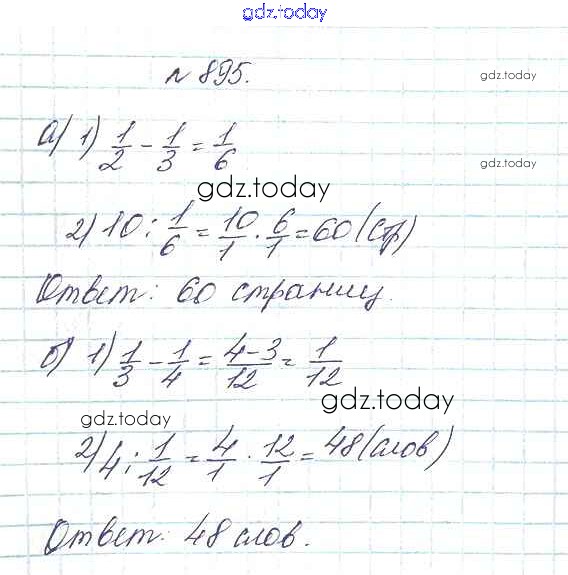 gdz.today
№ 895.
gdz.today
а) 1) 1/2 - 1/3 = 1/6
gdz.today
gdz.today
2) 10 : 1/6 = 10/1 · 6/1 = 60 (стр)
Ответ: 60 страниц.
б) 1) 1/3 - 1/4 = 4-3/12 = 1/12
gdz.today
gdz.today
2) 4 : 1/12 = 4/1 · 12/1 = 48 (слов)
Ответ: 48 слов.